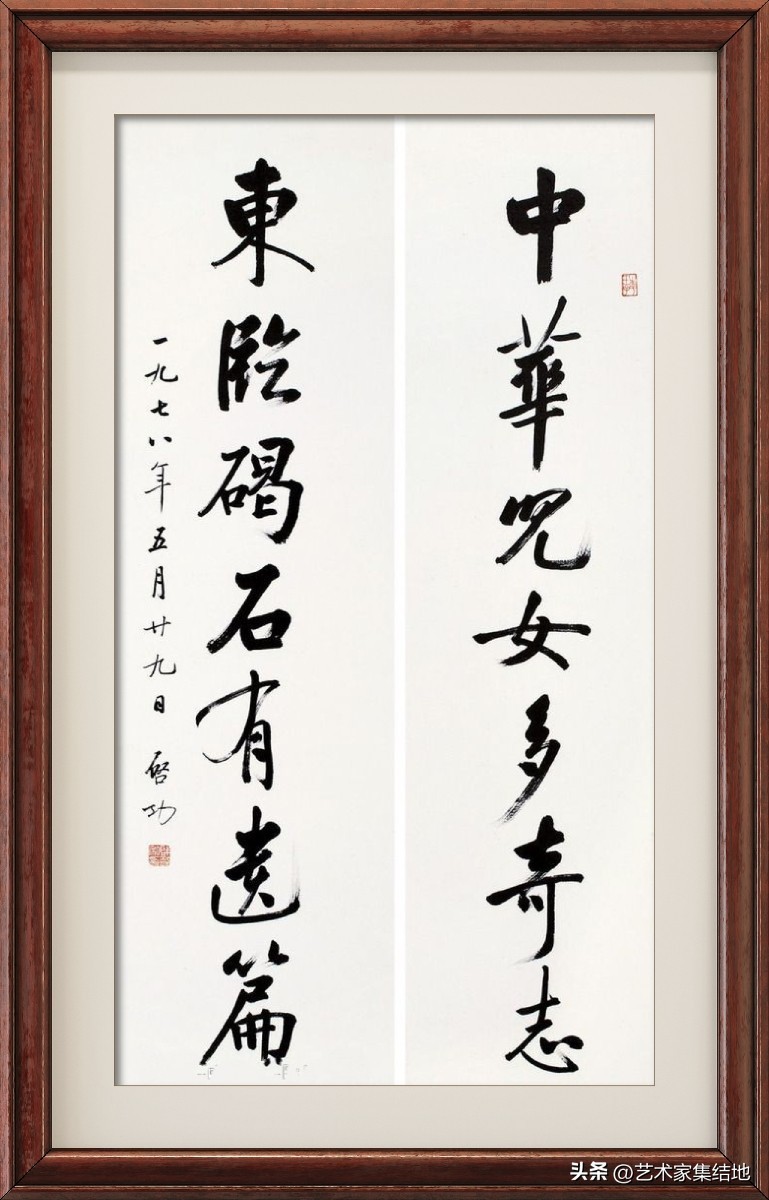 中華兒女多奇志
東臨碣石有遺篇
一九七八年五月廿九日 啓功
头条 @艺术家集结地